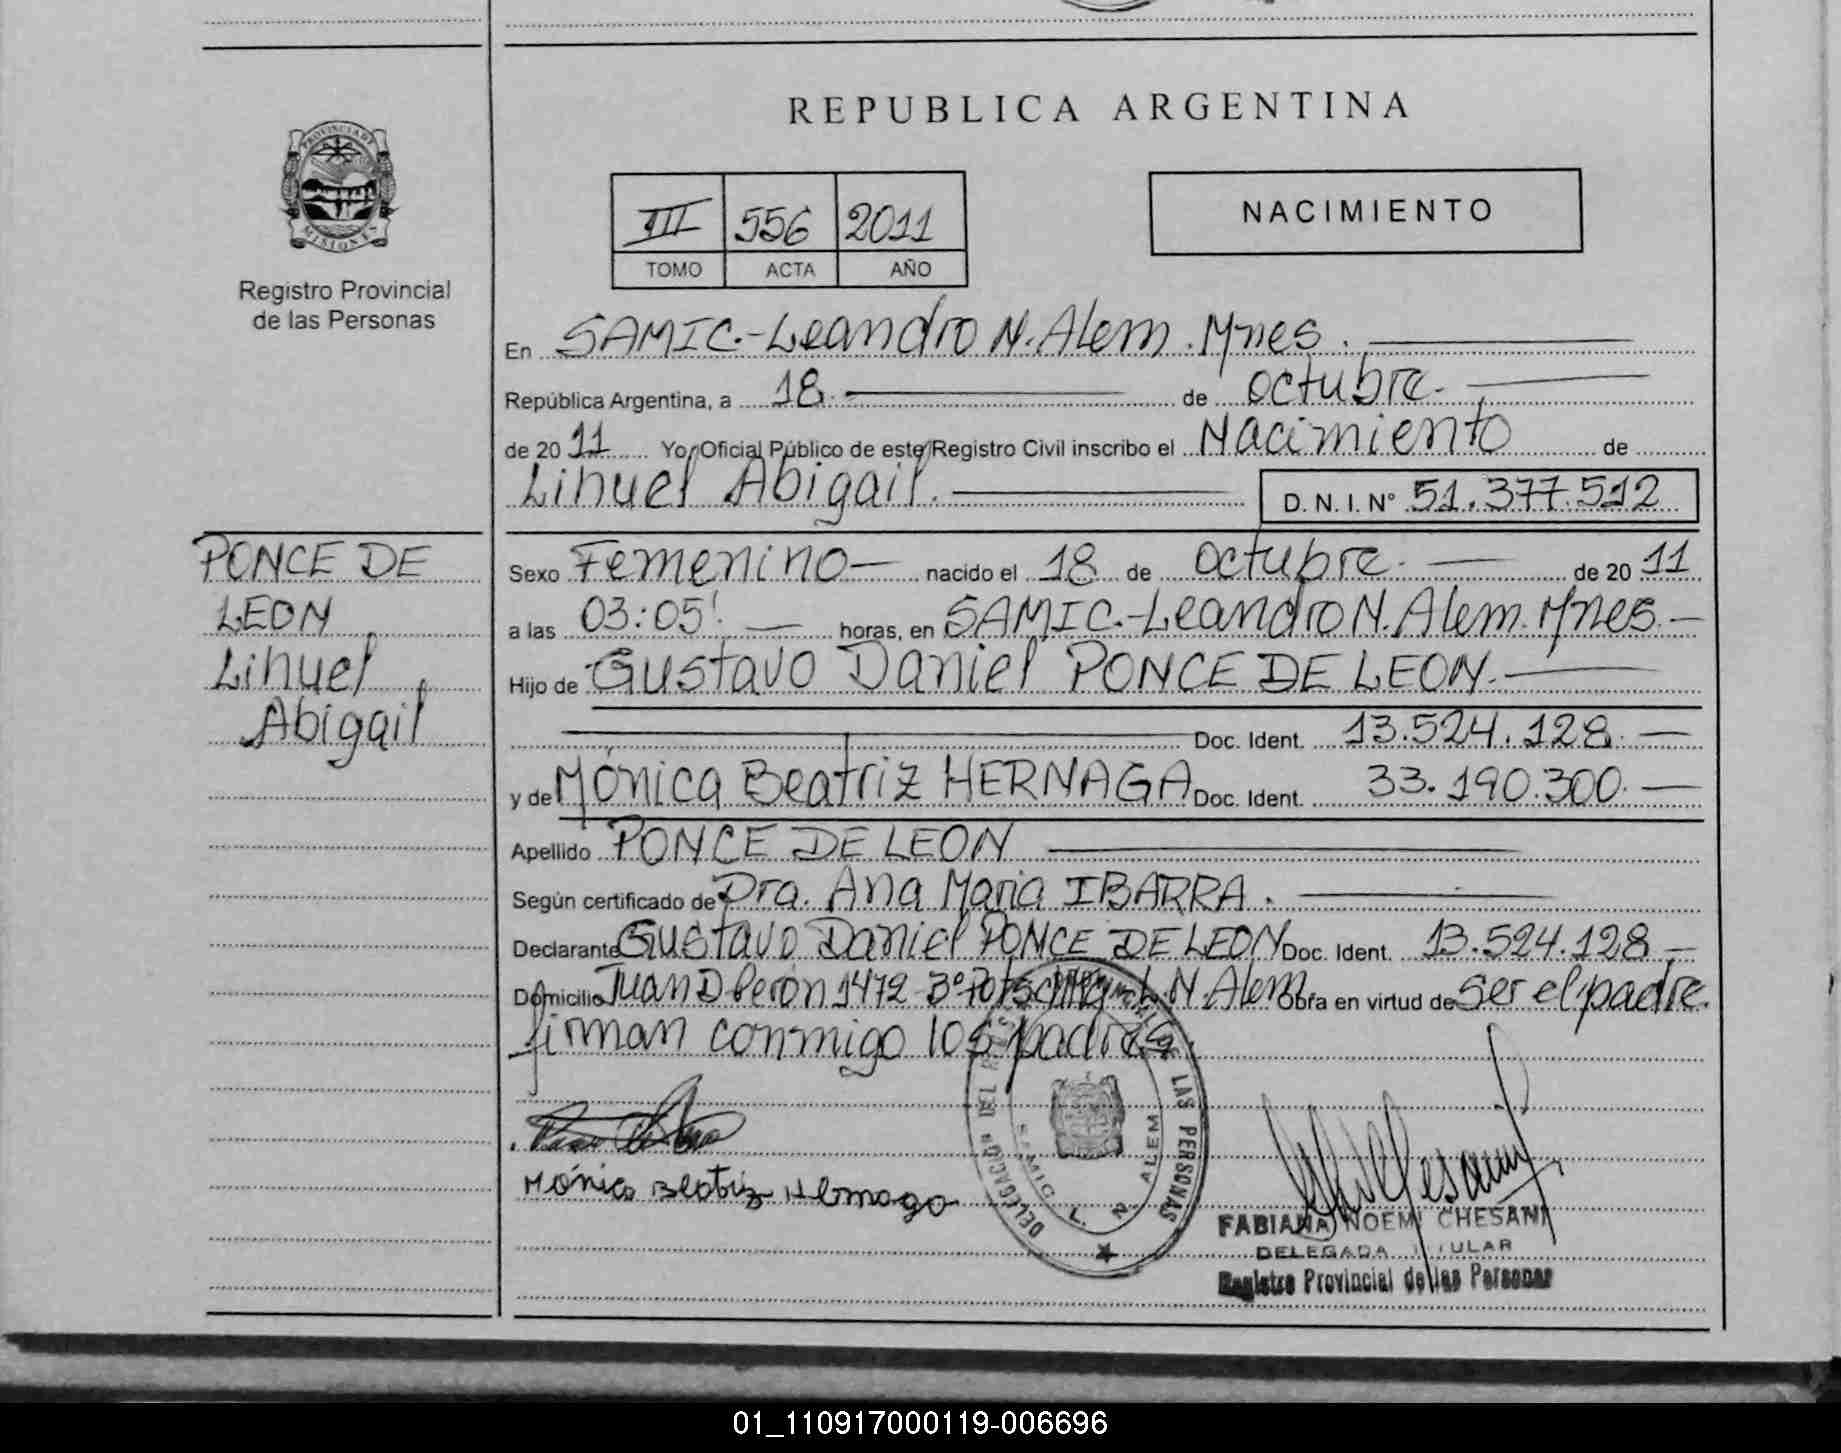 REPUBLICA ARGENTINA
PROVINCIA DE
MISIONES
Registro Provincial
de las Personas
III 556 2011
TOMO ACTA AÑO
NACIMIENTO
En SAMIC.-Leandro N. Alem. Mnes.
República Argentina, a 18. de octubre.
de 20 11 Yo, Oficial Público de este Registro Civil inscribo el Nacimiento de
Lihuel Abigail. D. N. I. N° 51.377.512
PONCE DE
LEON
Lihuel
Abigail
Sexo Femenino nacido el 18 de octubre. de 20 11
a las 03:05' horas, en SAMIC.-Leandro N. Alem. Mnes.
Hijo de Gustavo Daniel PONCE DE LEON.
Doc. Ident. 13.524.128.
y de Mónica Beatriz HERNAGA Doc. Ident. 33.190.300.
Apellido PONCE DE LEON
Según certificado de Dra. Ana Maria IBARRA.
Declarante Gustavo Daniel PONCE DE LEON Doc. Ident. 13.524.128
Domicilio Juan D Peron 1472 - B° L. N. Alem Obra en virtud de ser el padre.
firman conmigo los padres.
Mónica Beatriz Hernaga
DELEGACION DEL LAS PERSONAS
SAMIC L. N. ALEM
FABIANA NOEMI CHESANI
DELEGADA TITULAR
Registro Provincial de las Personas
01_110917000119-006696